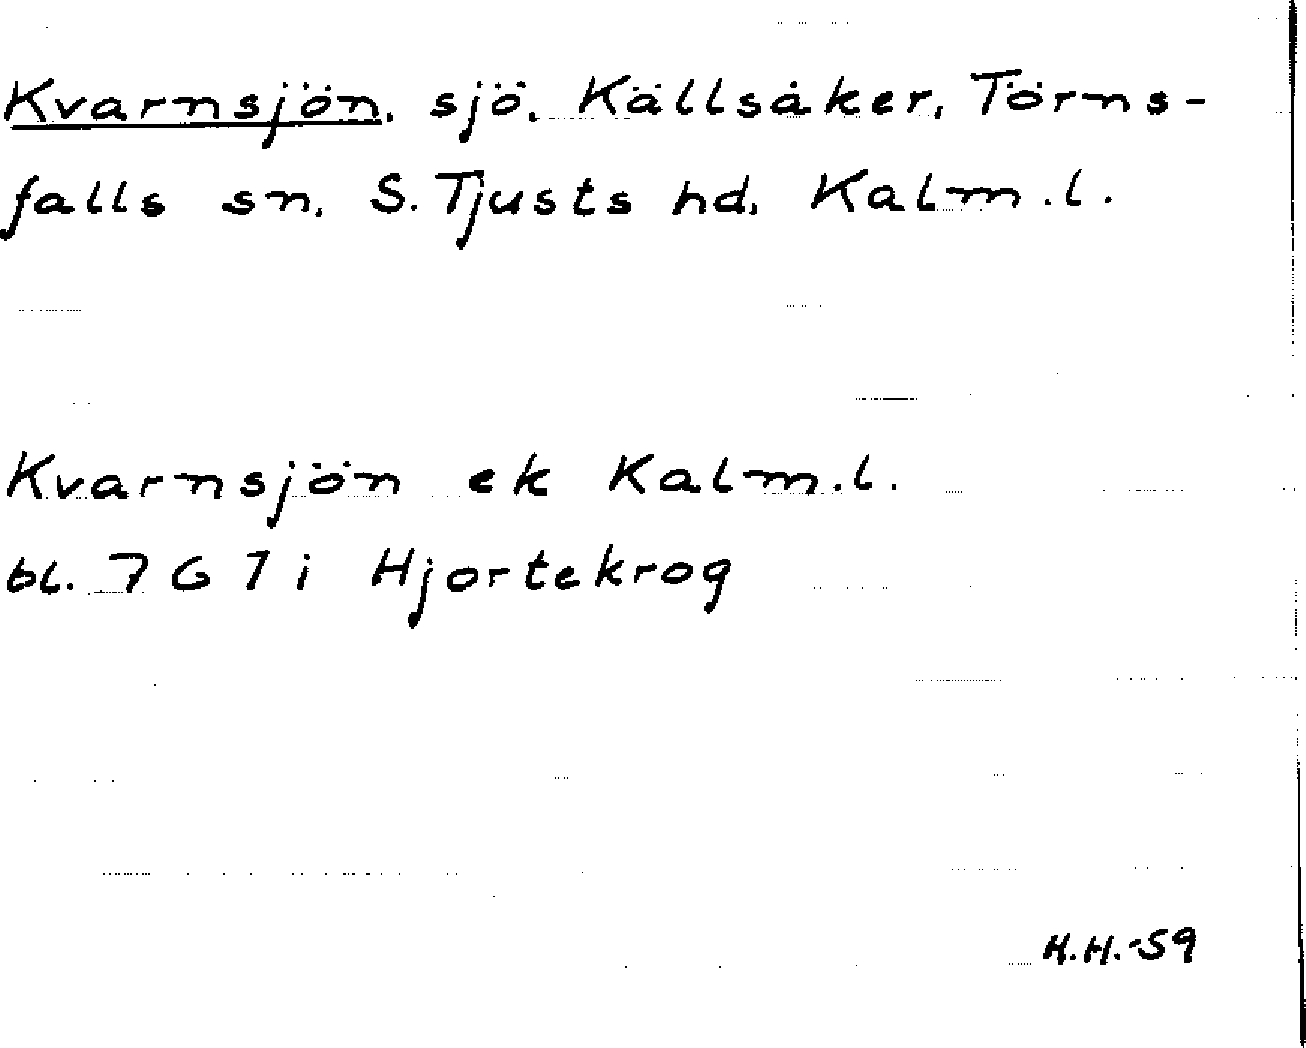 Kvarnsjön, sjö. Källsåker, Törns-
falls sn. S. Tjusts hd. Kalm.l.
Kvarnsjön ek Kalm.l.
bl. 7 G 7 i Hjortekrog
H.H.-59